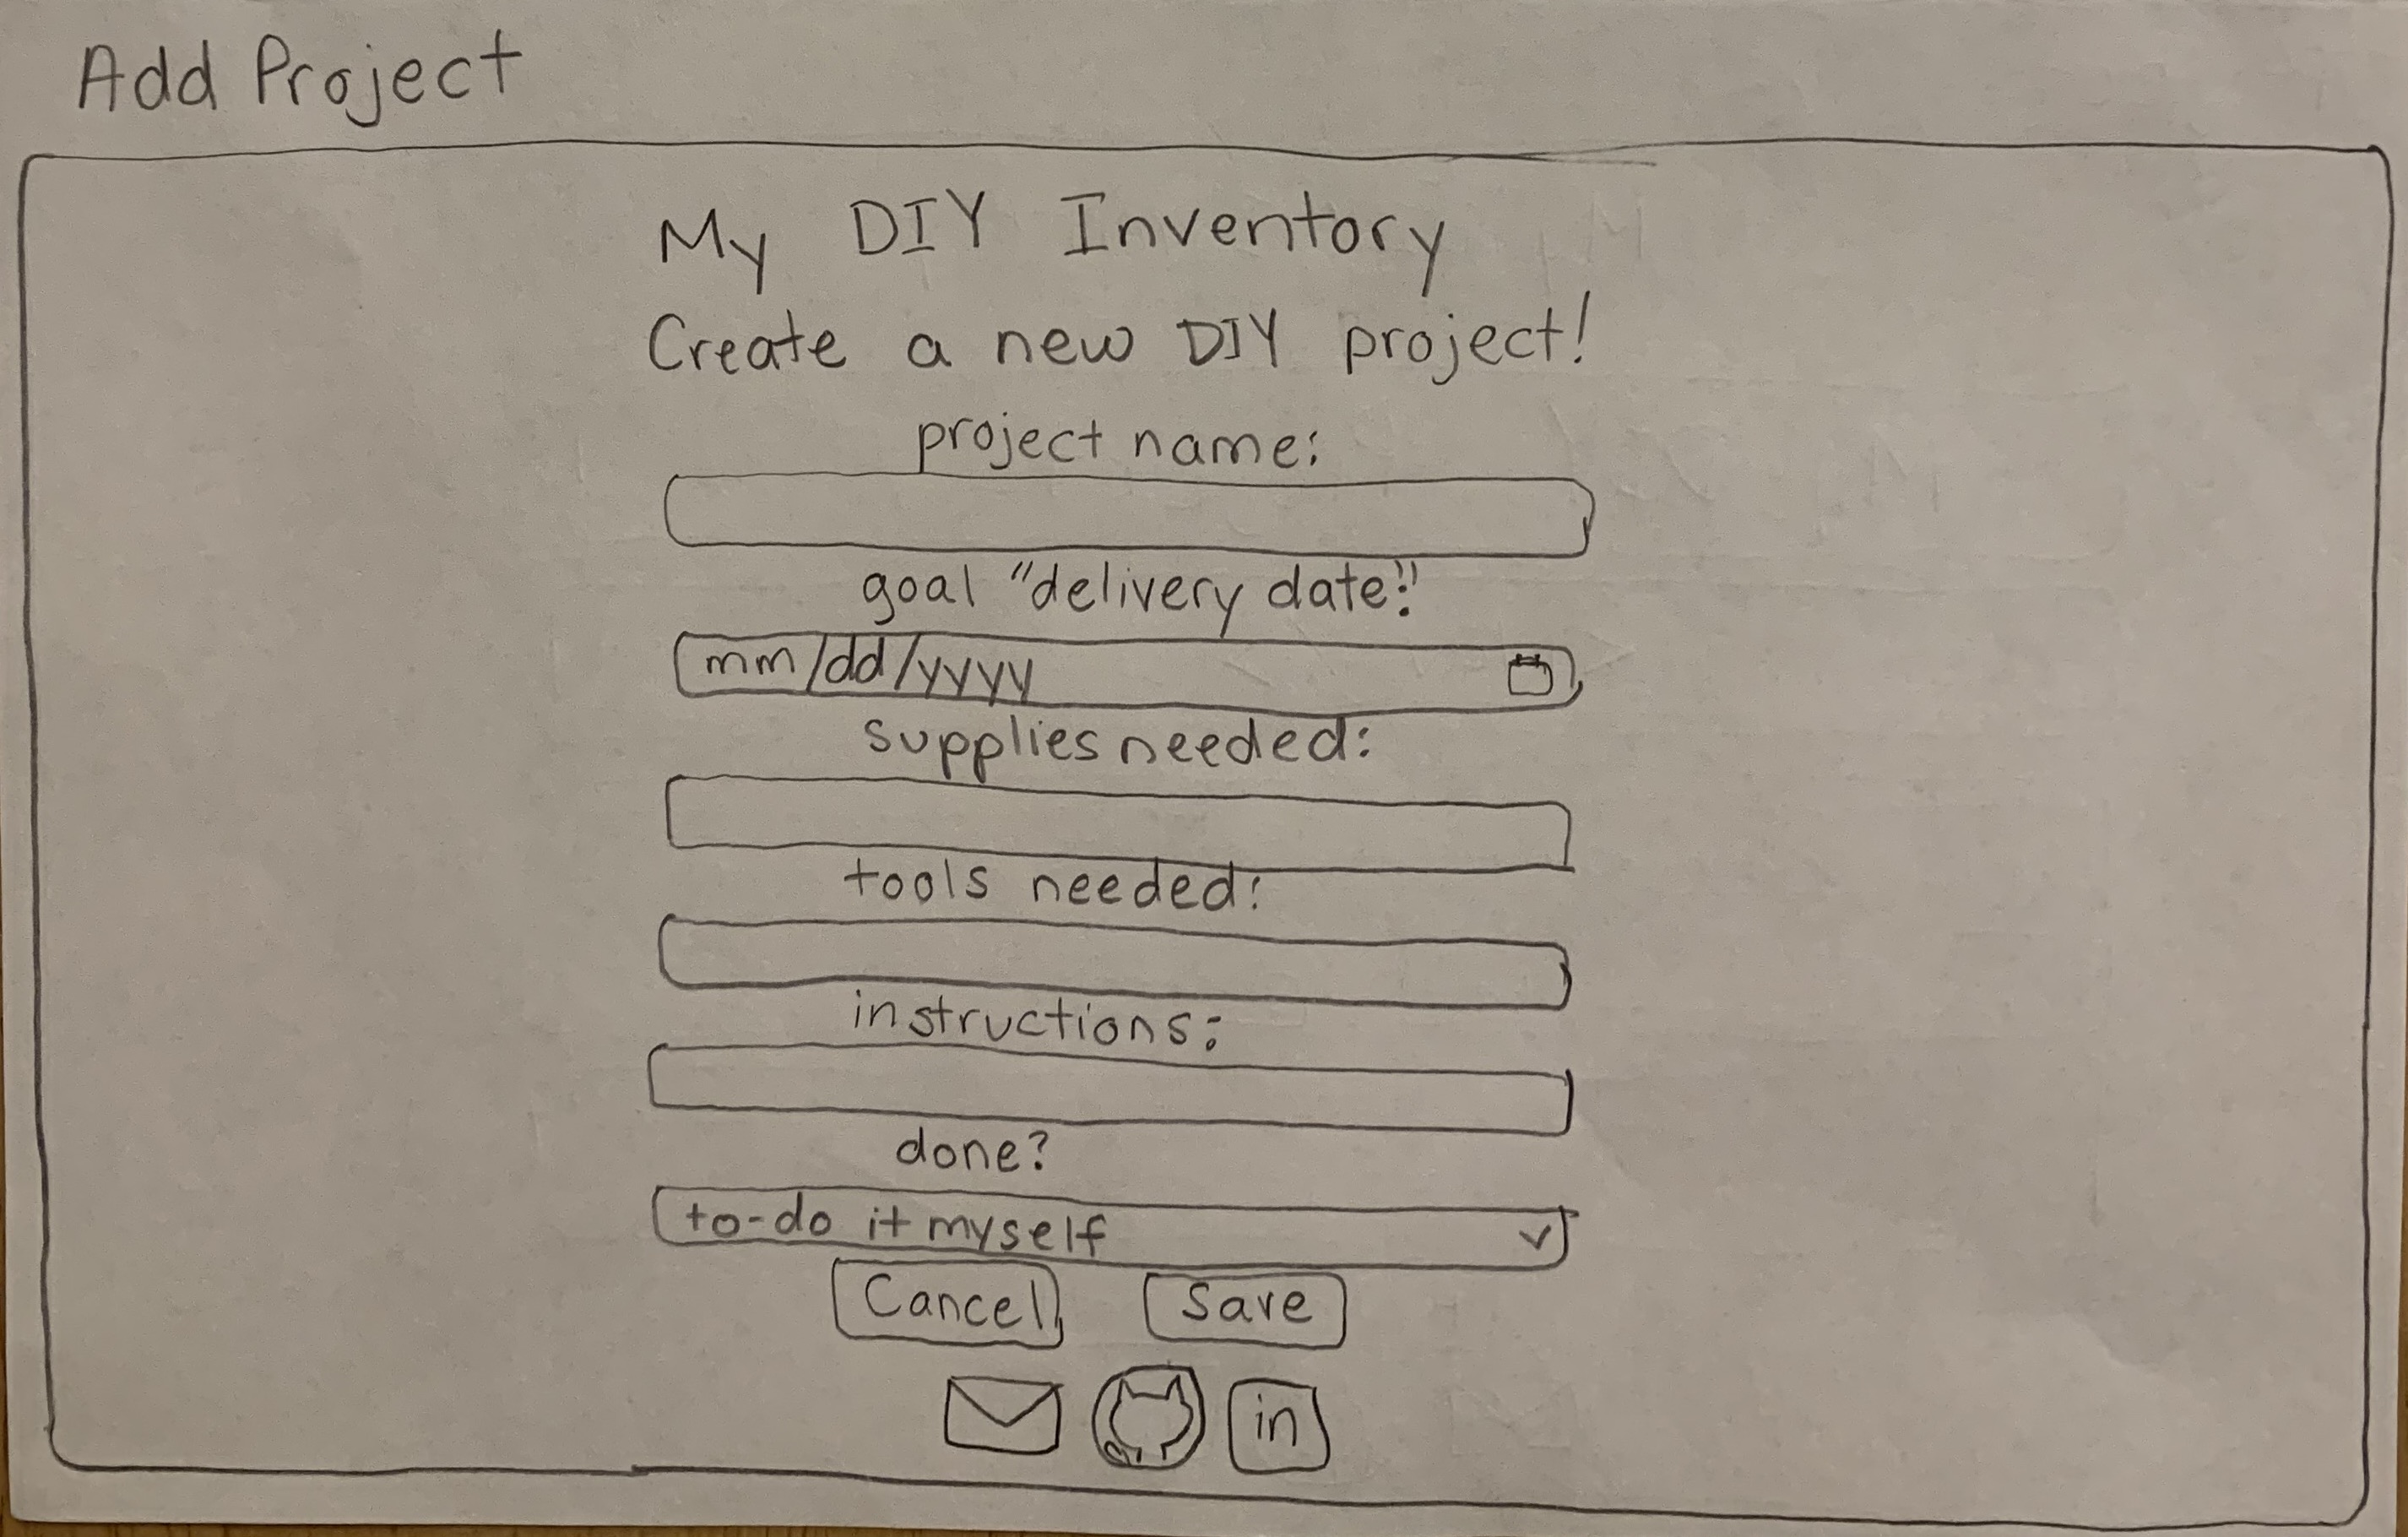 Add Project
My DIY Inventory
Create a new DIY project!
project name:
goal "delivery date:"
mm/dd/yyyy
supplies needed:
tools needed:
instructions:
done?
to-do it myself
Cancel Save
in